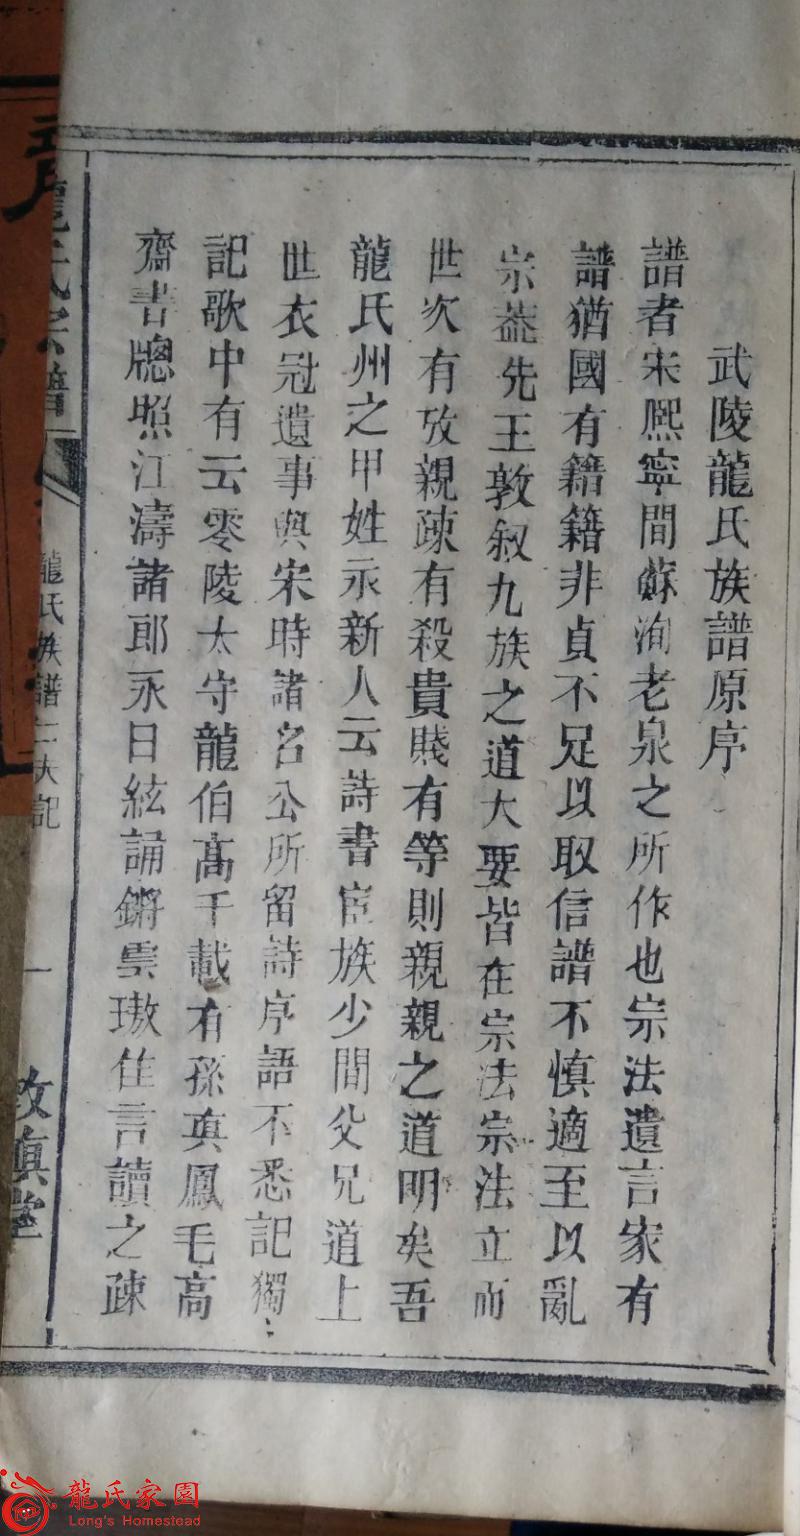 武陵龍氏族譜原序
譜者宋熙寧間蘇洵老泉之所作也宗法遺言家有
譜猶國有籍籍非貞不足以取信譜不慎適至以亂
宗葢先王敦叙九族之道大要皆在宗法宗法立而
世次有攷親疎有殺貴賤有等則親親之道明矣吾
龍氏州之甲姓永新人云詩書宦族少間父兄道上
世衣冠遺事與宋時諸名公所留詩序語不悉記獨
記歌中有云零陵太守龍伯高千載有孫真鳳毛高
齋書牕照江濤諸郎永日絃誦鏘雲璈佳言讀之疎
龍氏宗譜
龍氏族譜仁大記
一
敦慎堂
龍氏家園
Long's Homestead